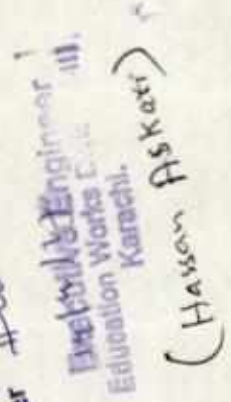 Executive Engineer
Education Works Div. III,
Karachi.
(Hassan Askari)